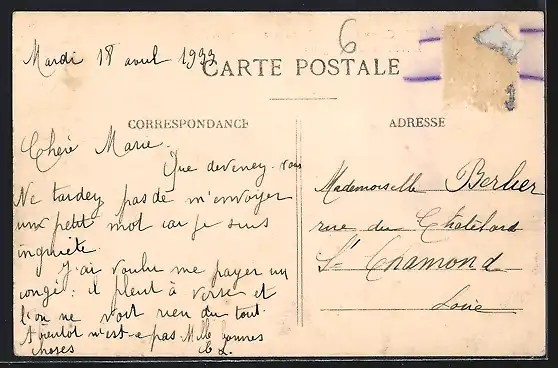 Mardi 18 avril 1933
6
CARTE POSTALE
CORRESPONDANCE
ADRESSE
Chère Marie
Que devenez-vous
Ne tardez pas de m'envoyer
un petit mot car je suis
inquiète.
J'ai voulu me payer un
congé: il pleut à verse et
l'on ne voit rien du tout.
A bientôt n'est-ce pas Mlle bonnes
choses
Mademoiselle Berlier
rue du Chatelard
St Chamond
Loire